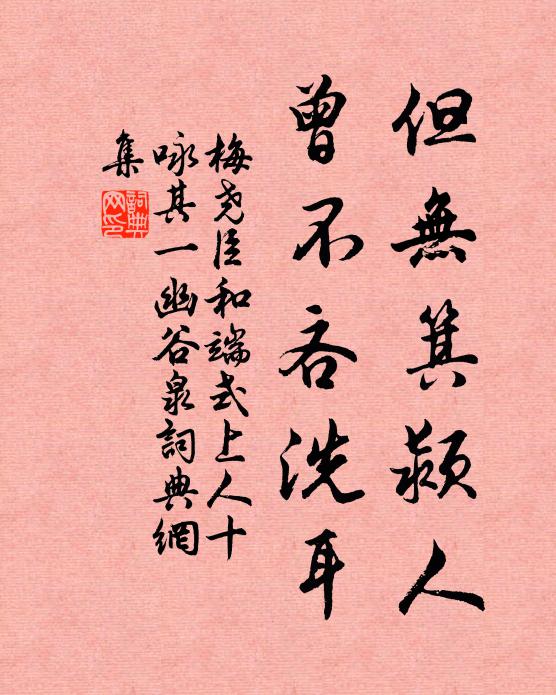 但無箕潁人
曾不吝洗耳
梅堯臣和端式上人十
咏其一幽谷泉詞典網
集
詞典
网印